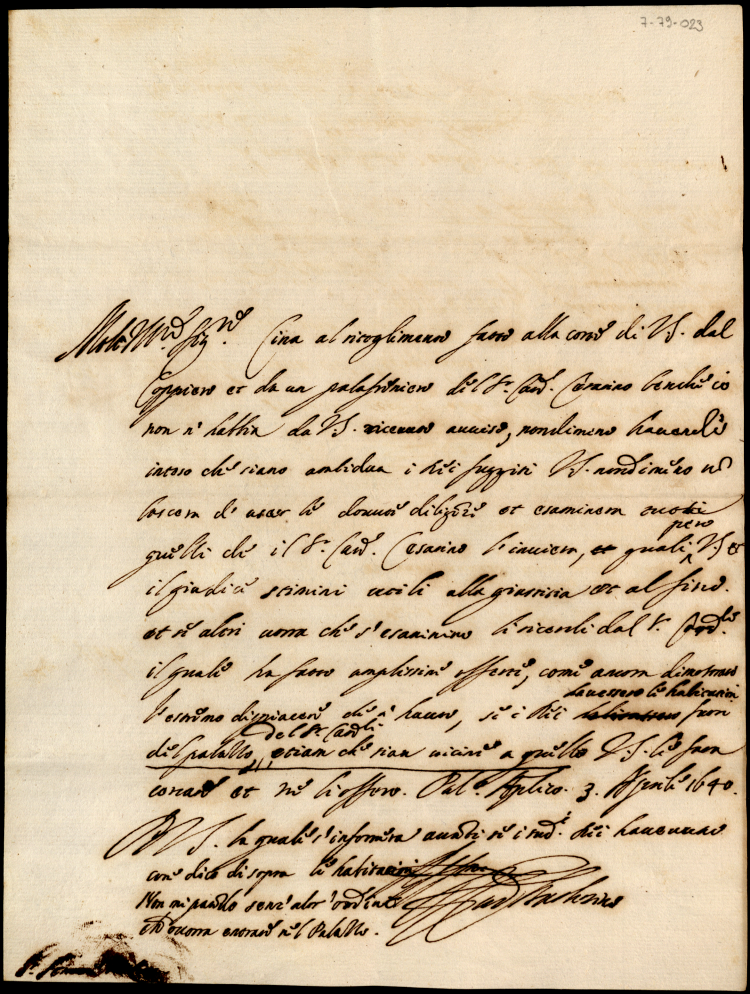 7-79-023
Molto Ill.re Sig.re Circa al ricoglimento fatto alla corte di V.S. dal
Coppiero et da un palafreniero del S.r Card. Cesarino benche io
non n'habbia da V.S. ricevuto avviso, nondimeno havendo
inteso che siano ambidua i rei fuggiti V.S. nondimeno non
lascera di usar le dovute diligenze et esaminera
quelli che il S.r Card. Cesarino l'inviera, et quali però V.S. et
il giudice stimini utili alla giustitia et al fisco.
et se altri vorra che s'esaminino li ricerchi dal S.r Card.le
il quale ha fatto amplissime offerte, come ancora dimostrato
l'estremo dispiacere che n'have, se i rei havessero le habitationi fuori
del palazzo del S.r Card.le, etiam che sian vicine a quello V.S. le facci
cercare et ne li offero. Pal.o Ap.lico. 3. Aprile 1640.
V.S. la quale s'informera avanti se i sud.i rei havevano
come dico di sopra le habitationi
Non mi pando senz'altr'ordine
di entrare nel Palazzo.